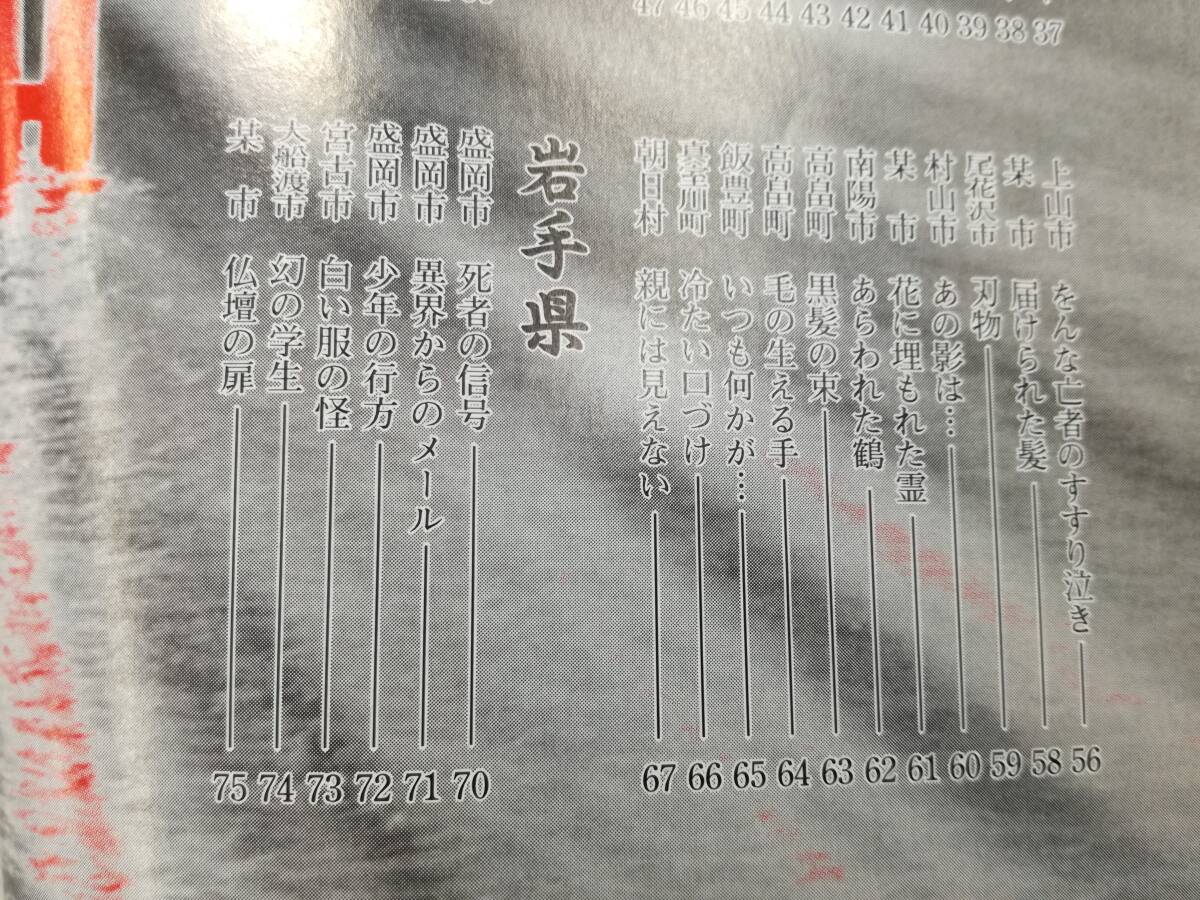 37
38
39
40
41
42
43
44
45
46
47
上山市 をんな亡者のすすり泣き 56
某市 届けられた髪 58
尾花沢市 刃物 59
村山市 あの影は… 60
某市 花に埋もれた霊 61
南陽市 あらわれた鶴 62
高畠町 黒髪の束 63
高畠町 毛の生える手 64
飯豊町 いつも何かが… 65
真室川町 冷たい口づけ 66
朝日村 親には見えない 67
岩手県
盛岡市 死者の信号 70
盛岡市 異界からのメール 71
盛岡市 少年の行方 72
宮古市 白い服の怪 73
大船渡市 幻の学生 74
某市 仏壇の扉 75